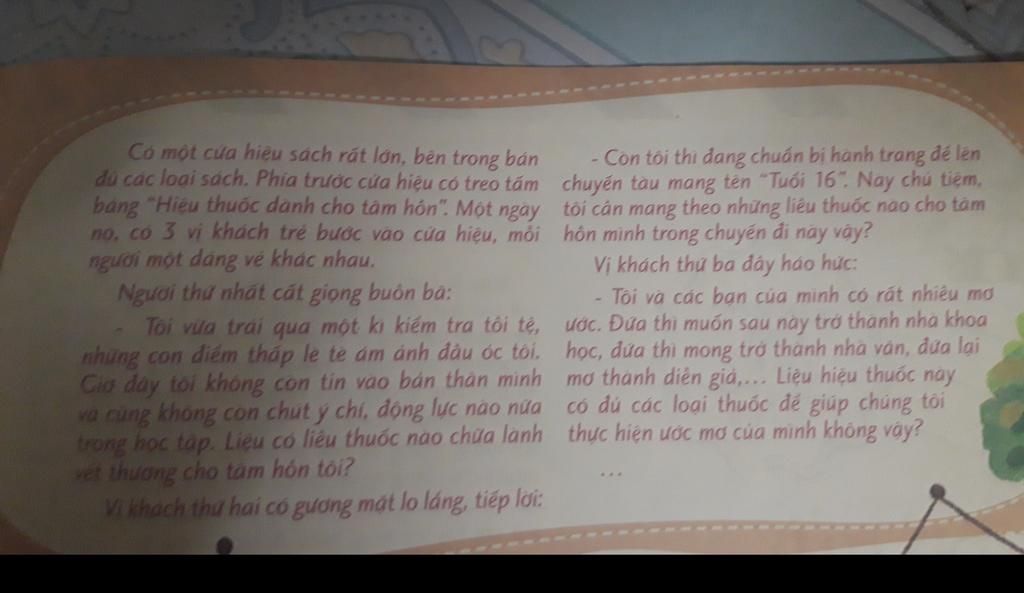 Có một cửa hiệu sách rất lớn, bên trong bán
đủ các loại sách. Phía trước cửa hiệu có treo tấm
bảng "Hiệu thuốc dành cho tâm hồn". Một ngày
nọ, có 3 vị khách trẻ bước vào cửa hiệu, mỗi
người một dáng vẻ khác nhau.
Người thứ nhất cất giọng buồn bã:
- Tôi vừa trải qua một kì kiểm tra tồi tệ,
những con điểm thấp lè tè ám ảnh đầu óc tôi.
Giờ đây tôi không còn tin vào bản thân mình
và cũng không còn chút ý chí, động lực nào nữa
trong học tập. Liệu có liều thuốc nào chữa lành
vết thương cho tâm hồn tôi?
Vị khách thứ hai có gương mặt lo lắng, tiếp lời:
- Còn tôi thì đang chuẩn bị hành trang để lên
chuyến tàu mang tên "Tuổi 16". Này chủ tiệm,
tôi cần mang theo những liều thuốc nào cho tâm
hồn mình trong chuyến đi này vậy?
Vị khách thứ ba đầy háo hức:
- Tôi và các bạn của mình có rất nhiều mơ
ước. Đứa thì muốn sau này trở thành nhà khoa
học, đứa thì mong trở thành nhà văn, đứa lại
mơ thành diễn giả,... Liệu hiệu thuốc này
có đủ các loại thuốc để giúp chúng tôi
thực hiện ước mơ của mình không vậy?
...